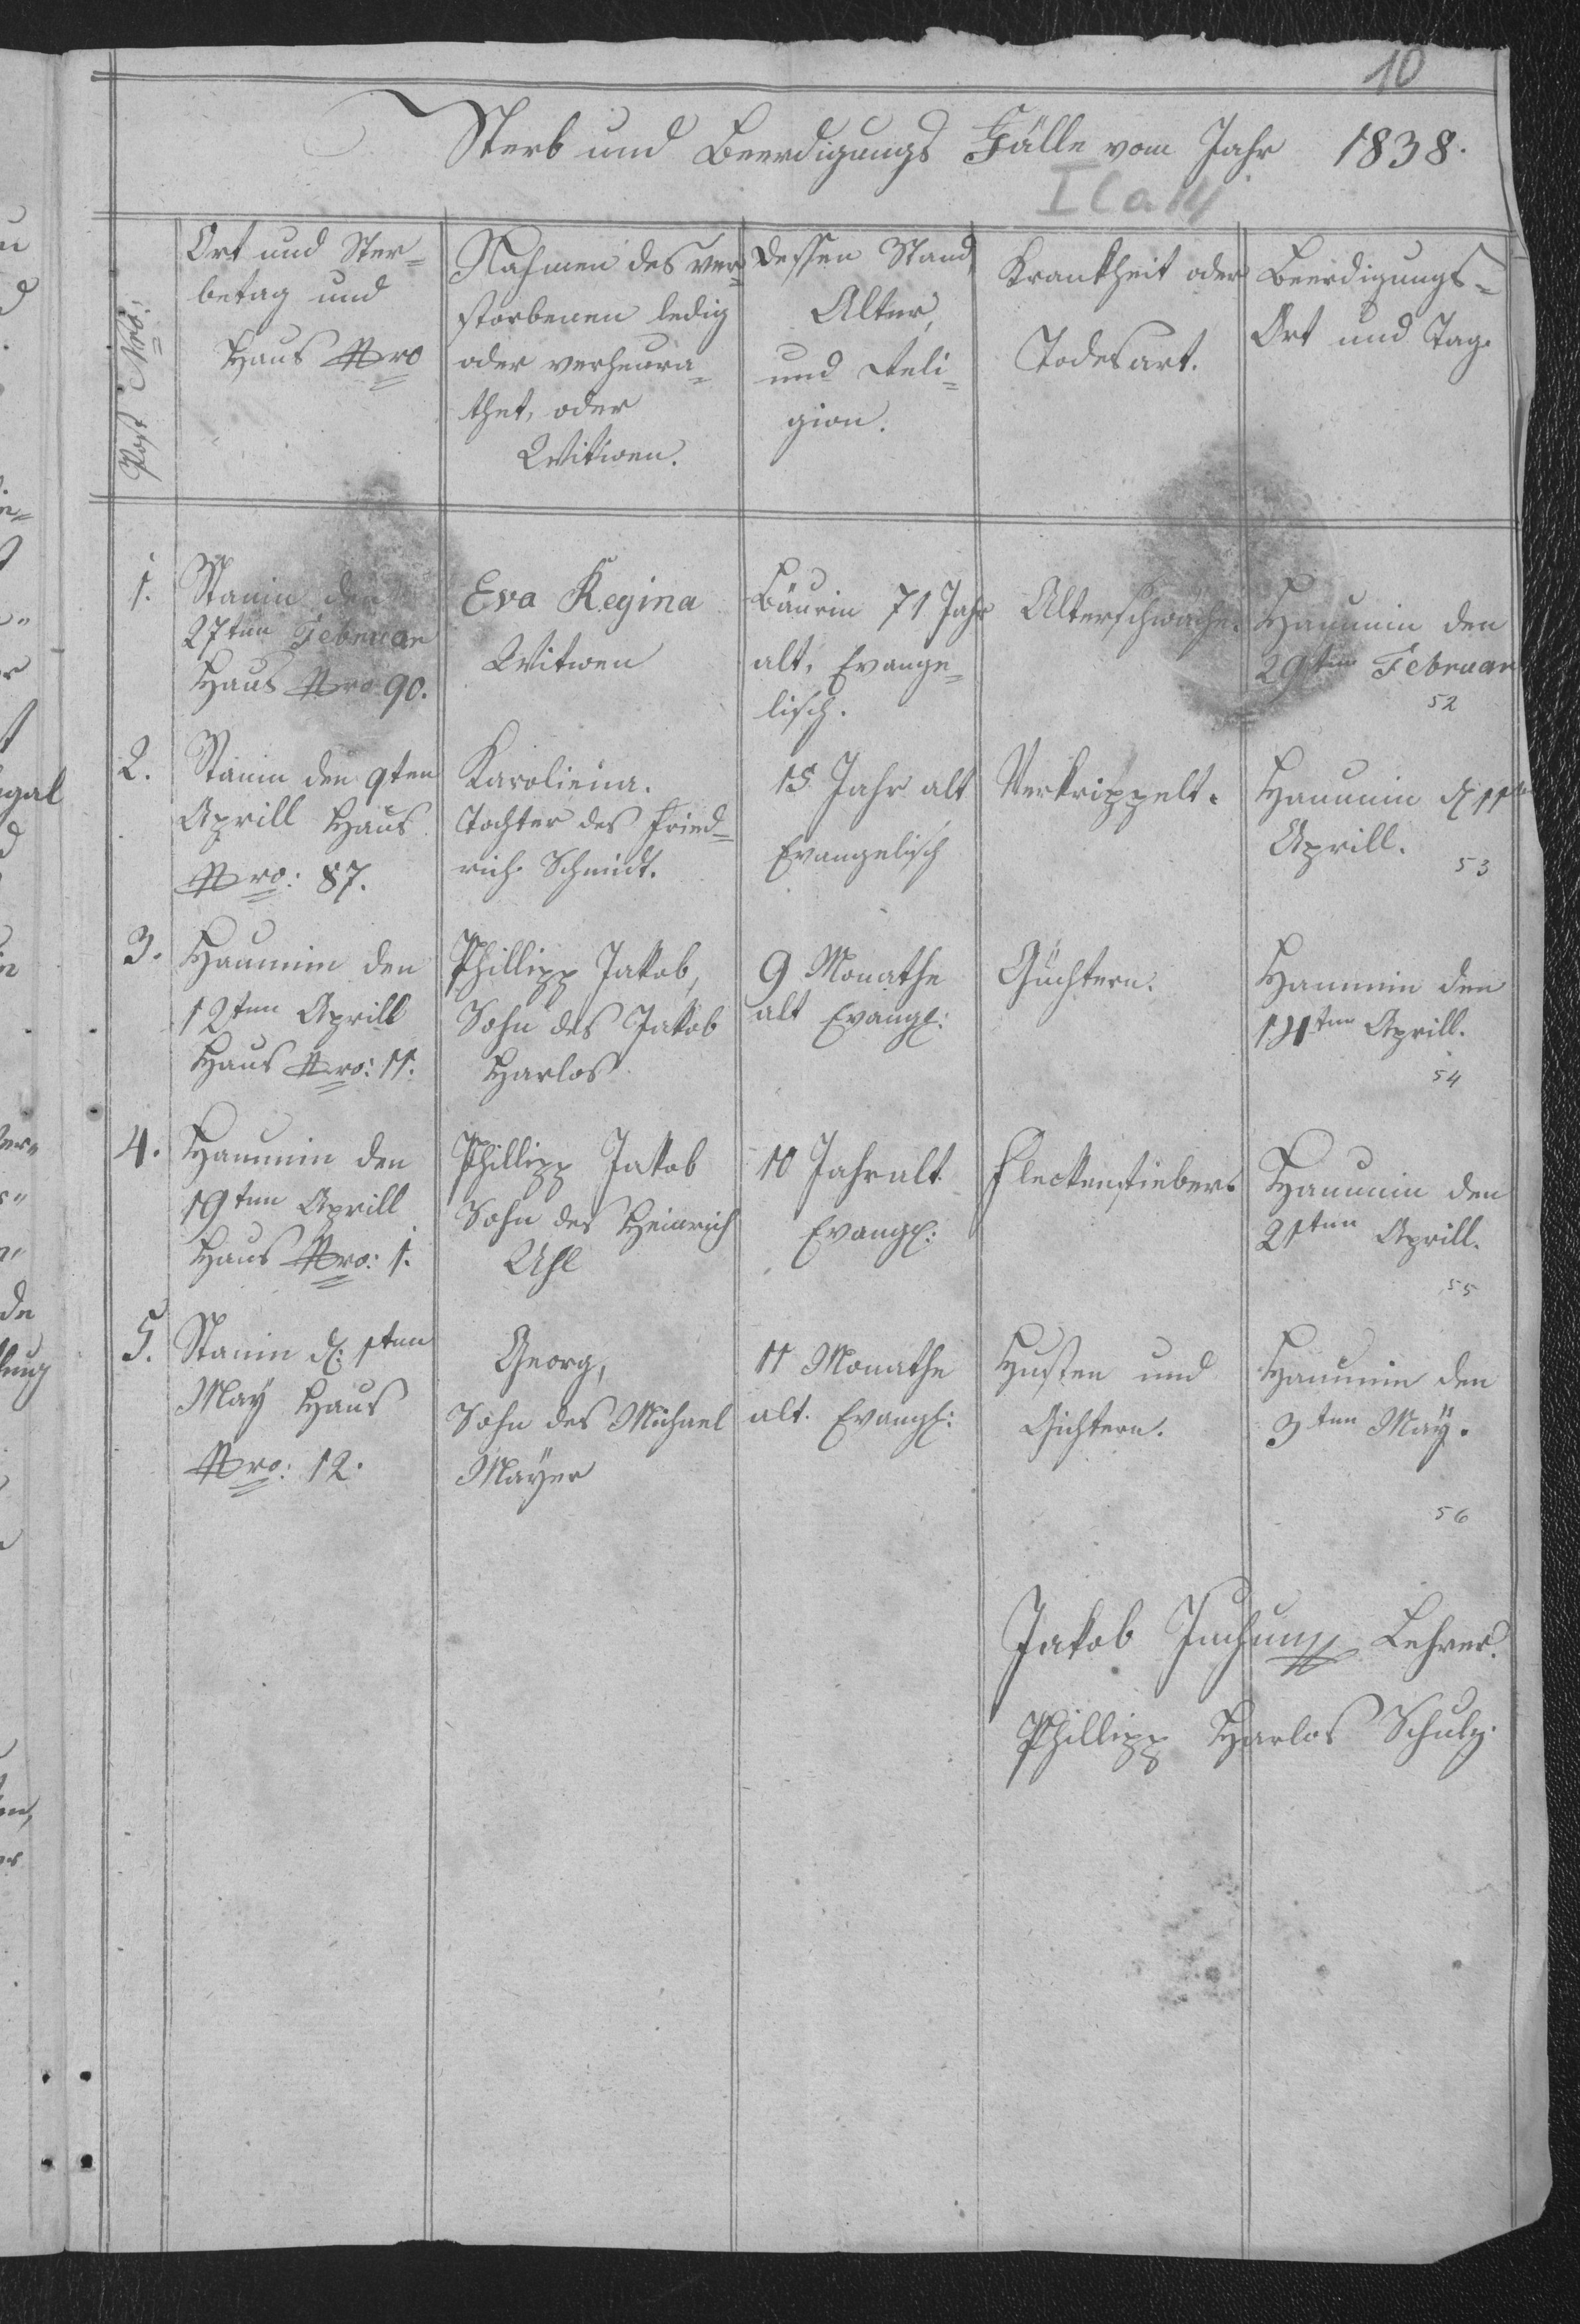 10
Sterb und Beerdigungs Fälle vom Jahr 1838.
I C a 14
Post Nro:
Ort und Ster=
betag und
Haus Nro
Nahmen des ver=
storbenen ledig
oder verheura=
thet, oder
Witiven.
Dessen Stand,
Alter,
und Reli=
gion.
Krankheit oder
Todesart.
Beerdigungs=
Ort und Tag.
1.
Stanin den
27ten Februar
Haus Nro 90.
Eva Regina
Witwen
Bäurin 71 Jahr
alt, Evange=
lisch.
Alterschwäche.
Haunin den
29ten Februar
52
2.
Stanin den 9ten
Aprill Haus
Nro: 87.
Karoliena.
Tochter des Fried=
rich Schmidt.
15 Jahr alt
Evangelisch
Verkrippelt.
Haunin d 11ten
Aprill.
53
3.
Haunin den
12ten Aprill
Haus Nro: 11.
Phillipp Jakob,
Sohn des Jakob
Harlos
9 Monathe
alt Evangl:
Güchtern.
Haunin den
14ten Aprill.
54
4.
Haunin den
19ten Aprill
Haus Nro: 1.
Phillipp Jakob
Sohn des Heinrich
Uhl
10 Jahr alt.
Evangl:
Fleckenfiebers
Haunin den
21ten Aprill.
55
5.
Stanin d: 1ten
May Haus
Nro: 12.
Georg,
Sohn des Michael
Mayer
11 Monathe
alt. Evangl:
Husten und
Gichtern.
Haunin den
3ten May.
56
Jakob Lehrer.
Phillipp Harlos Schulz.